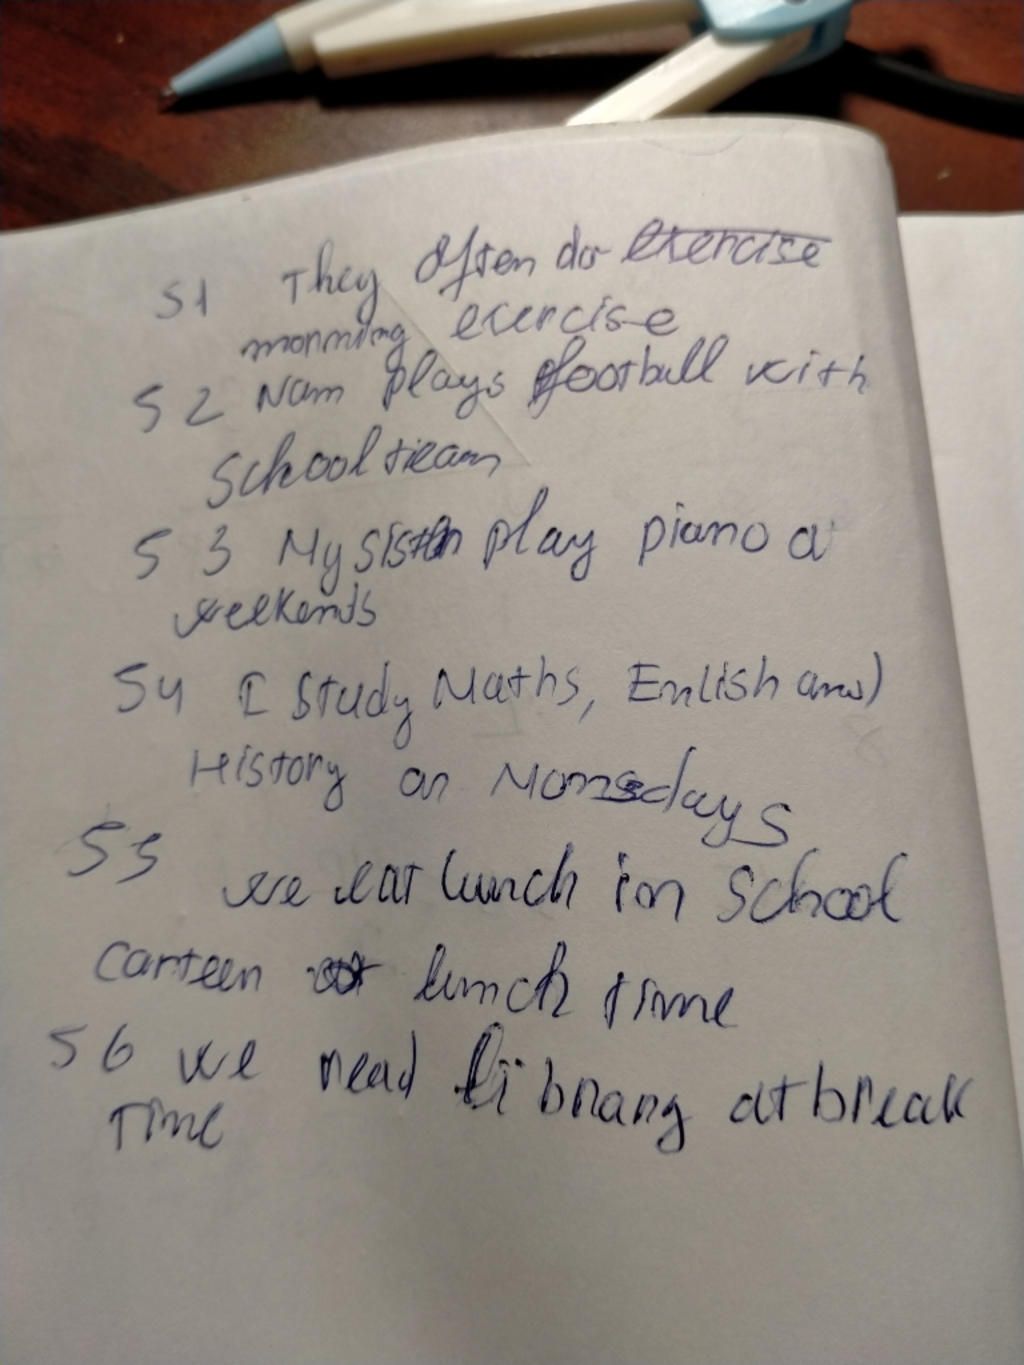 51 They often do exercise
morning exercise
52 Nam plays football with
School team
53 My sister play piano a
weekends
54 I study Maths, Enlish and
History on Monsdays
55 we eat lunch in school
canteen at lunch time
56 we read library at break
time